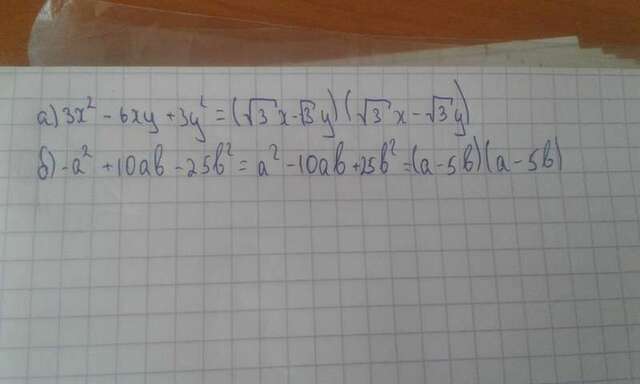 а) 3x² - 6xy + 3y² = (√3 x - √3 y) (√3 x - √3 y)
б) - a² + 10ab - 25b² = a² - 10ab + 25b² = (a - 5b) (a - 5b)